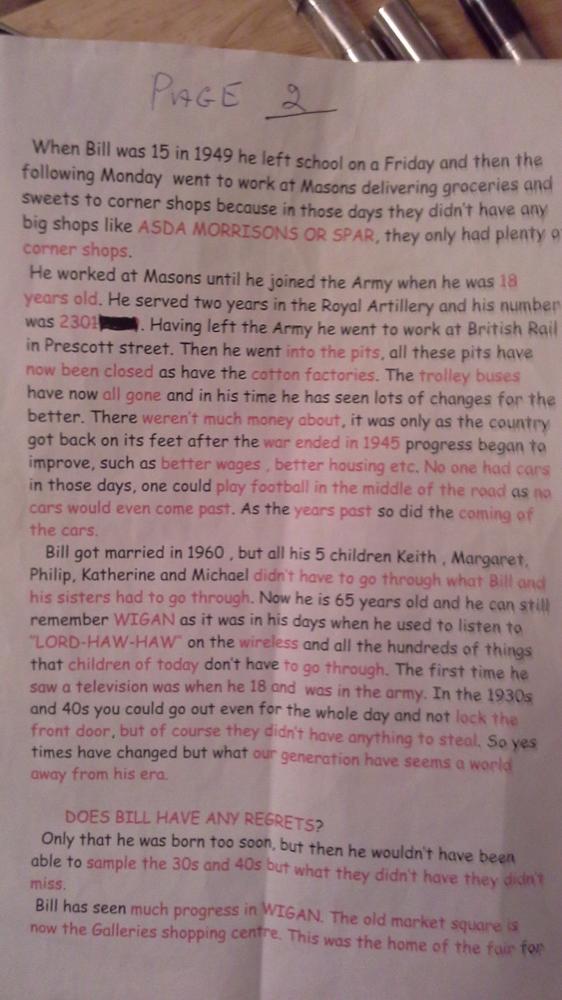 PAGE 2
When Bill was 15 in 1949 he left school on a Friday and then the
following Monday went to work at Masons delivering groceries and
sweets to corner shops because in those days they didn't have any
big shops like ASDA MORRISONS OR SPAR, they only had plenty o
corner shops.
He worked at Masons until he joined the Army when he was 18
years old. He served two years in the Royal Artillery and his number
was 2301 . Having left the Army he went to work at British Rail
in Prescott street. Then he went into the pits, all these pits have
now been closed as have the cotton factories. The trolley buses
have now all gone and in his time he has seen lots of changes for the
better. There weren't much money about, it was only as the country
got back on its feet after the war ended in 1945 progress began to
improve, such as better wages , better housing etc. No one had cars
in those days, one could play football in the middle of the road as no
cars would even come past. As the years past so did the coming of
the cars.
Bill got married in 1960 , but all his 5 children Keith , Margaret,
Philip, Katherine and Michael didn't have to go through what Bill and
his sisters had to go through. Now he is 65 years old and he can still
remember WIGAN as it was in his days when he used to listen to
"LORD-HAW-HAW" on the wireless and all the hundreds of things
that children of today don't have to go through. The first time he
saw a television was when he 18 and was in the army. In the 1930s
and 40s you could go out even for the whole day and not lock the
front door, but of course they didn't have anything to steal. So yes
times have changed but what our generation have seems a world
away from his era.
DOES BILL HAVE ANY REGRETS?
Only that he was born too soon, but then he wouldn't have been
able to sample the 30s and 40s but what they didn't have they didn't
miss.
Bill has seen much progress in WIGAN. The old market square is
now the Galleries shopping centre. This was the home of the fair for